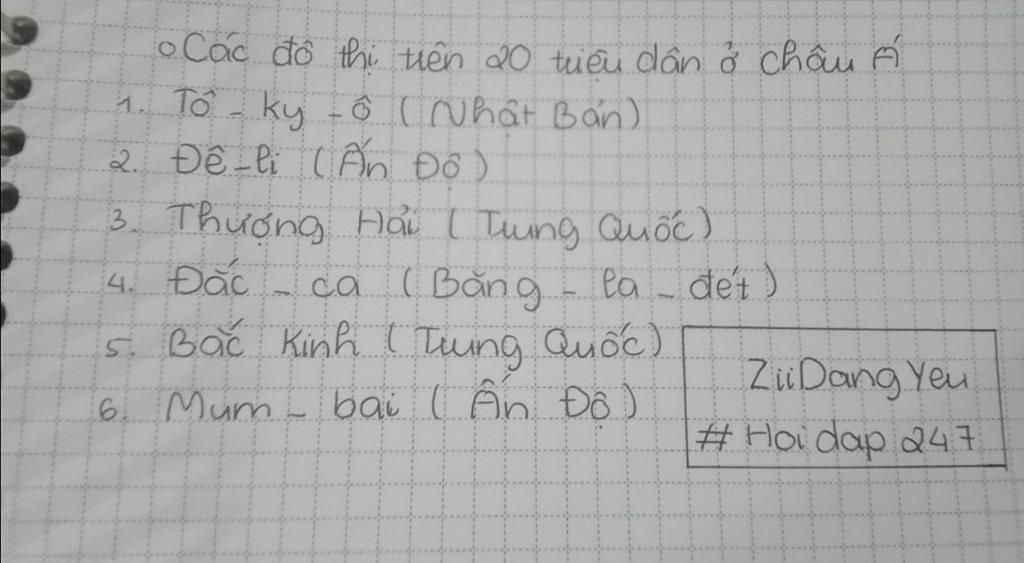 Các đô thị trên 20 triệu dân ở châu Á
1. Tô - ky - ô (Nhật Bản)
2. Đê - li (Ấn Độ)
3. Thượng Hải (Trung Quốc)
4. Đắc - ca (Băng - la - đét)
5. Bắc Kinh (Trung Quốc)
6. Mum - bai (Ấn Độ)
ZiiDangYeu
# Hoidap 247